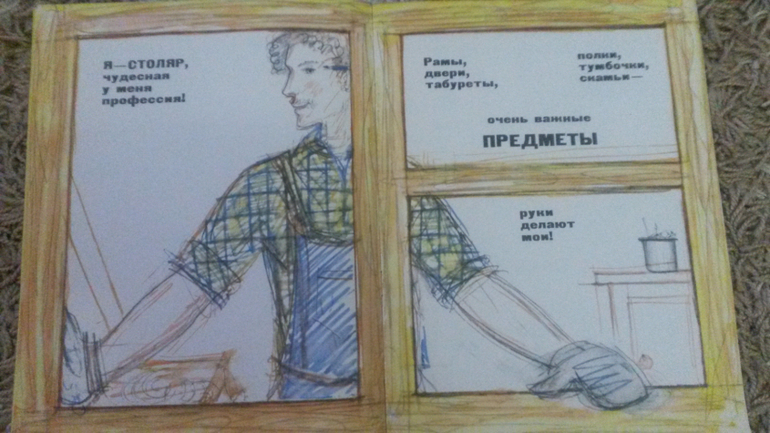 Я—СТОЛЯР,
чудесная
у меня
профессия!
Рамы,
двери,
табуреты,
полки,
тумбочки,
скамьи—
очень важные
ПРЕДМЕТЫ
руки
делают
мои!